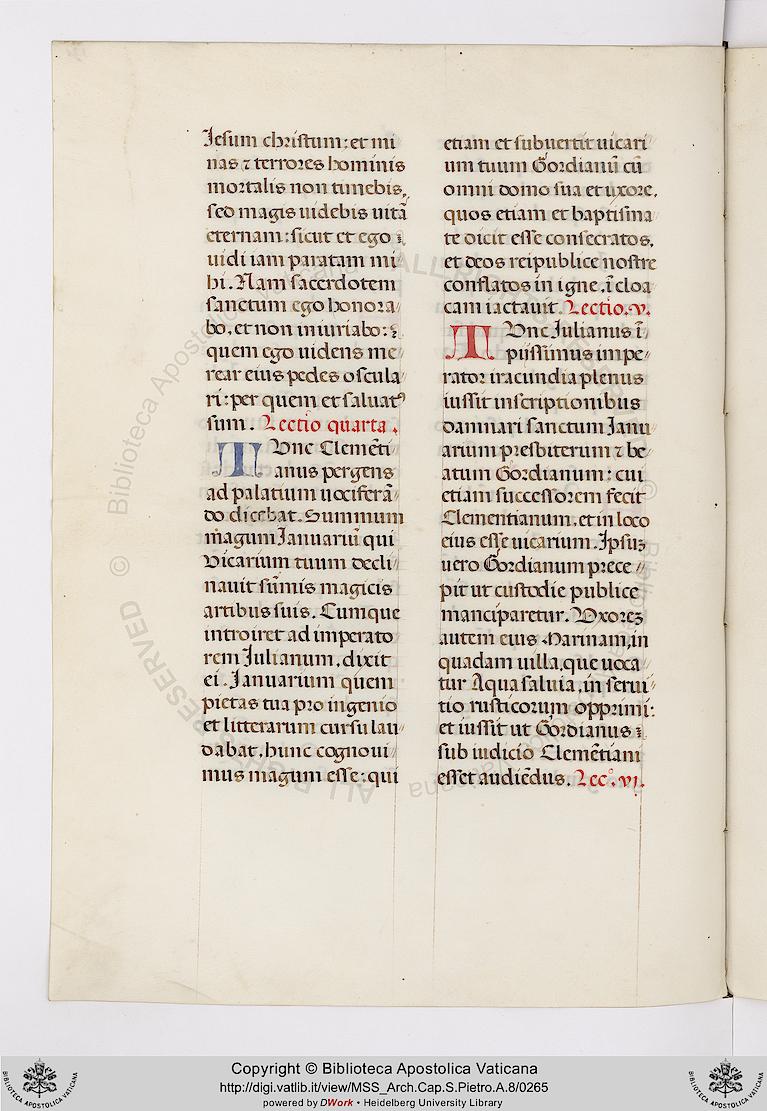 Jesum christum: et mi
nas ⁊ terrores hominis
mortalis non timebis,
sed magis uidebis uitā
eternam: sicut et ego
uidi iam paratam mi
hi. Nam sacerdotem
sanctum ego honora
bo, et non iniuriabo:
quem ego uidens me
rear eius pedes oscula
ri: per quem et saluatꝰ
sum. Lectio quarta.
TVnc Clemēti
anus pergens
ad palatium uociferā
do dicebat. Summum
magum Januariū qui
Vicarium tuum decli
nauit sūmis magicis
artibus suis. Cumque
introiret ad imperato
rem Julianum, dixit
ei. Januarium quem
pietas tua pro ingenio
et litterarum cursu lau
dabat, hunc cognoui
mus magum esse: qui
etiam et subuertit uicari
um tuum Gordianū cū
omni domo sua et uxore,
quos etiam et baptisma
te dicit esse consecratos,
et deos reipublice nostre
conflatos in igne, ī cloa
cam iactauit. Lectio. v.
TVnc Julianus ī
piissimus impe
rator iracundia plenus
iussit inscriptionibus
damnari sanctum Janu
arium presbiterum ⁊ be
atum Gordianum: cui
etiam successorem fecit
Clementianum, et in loco
eius esse uicarium. Ipsuꝫ
uero Gordianum prece
pit ut custodie publice
manciparetur. Vxoreꝫ
autem eius Marinam, in
quadam uilla, que uoca
tur Aqua saluia, in serui
tio rusticorum opprimi:
et iussit ut Gordianus
sub iudicio Clemētiani
esset audiēdus. Lecᵒ. vi.
© Biblioteca Apostolica Vaticana ALL RIGHTS RESERVED
Copyright © Biblioteca Apostolica Vaticana
http://digi.vatlib.it/view/MSS_Arch.Cap.S.Pietro.A.8/0265
powered by DWork • Heidelberg University Library
BIBLIOTECA APOSTOLICA VATICANA
BIBLIOTECA APOSTOLICA VATICANA